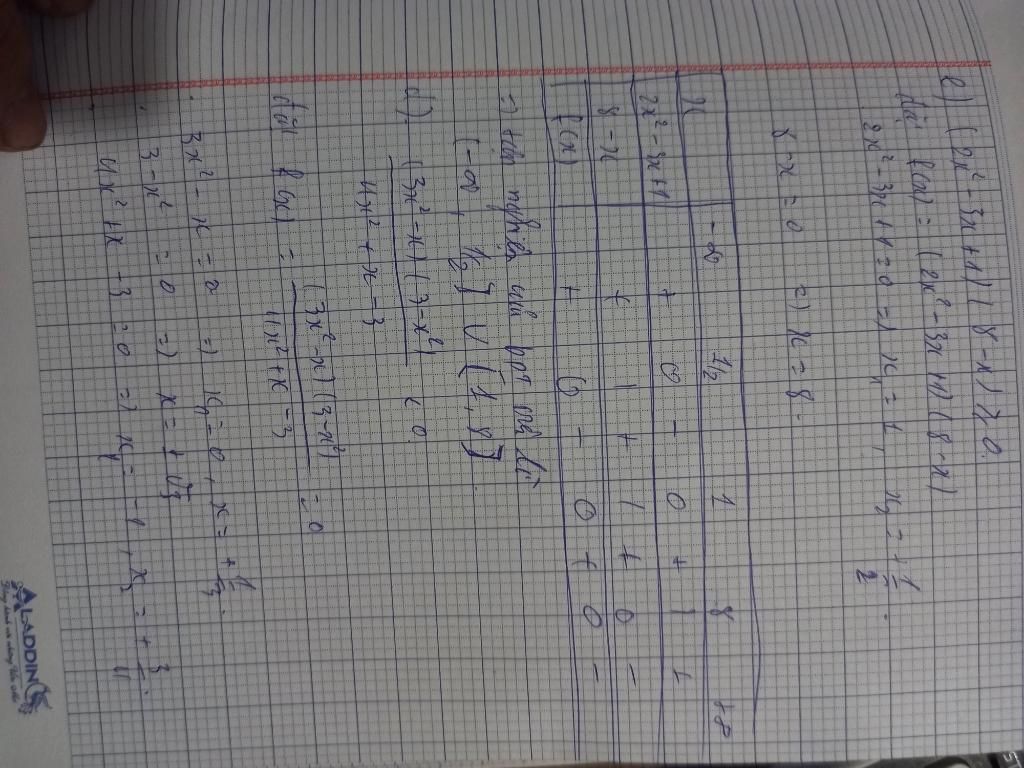 c) (2x² - 3x + 1)(8 - x) ≥ 0.
đặt f(x) = (2x² - 3x + 1)(8 - x)
2x² - 3x + 1 = 0 => x₁ = 1, x₂ = +1/2.
8 - x = 0 => x = 8.
x -∞ 1/2 1 8 +∞
2x² - 3x + 1 + 0 - 0 + | +
8 - x + | + | + 0 -
f(x) + 0 - 0 + 0 -
=> tập nghiệm của bpt
(-∞, 1/2] ∪ [1, 8]
d) (3x² - x)(3 - x²) / 4x² + x - 3 < 0
đặt f(x) = (3x² - x)(3 - x²) / 4x² + x - 3 = 0
3x² - x = 0 => x₁ = 0, x = +1/3.
3 - x² = 0 => x = ±√3
4x² + x - 3 = 0 => x₁ = -1, x₂ = +3/4.
ALADDIN